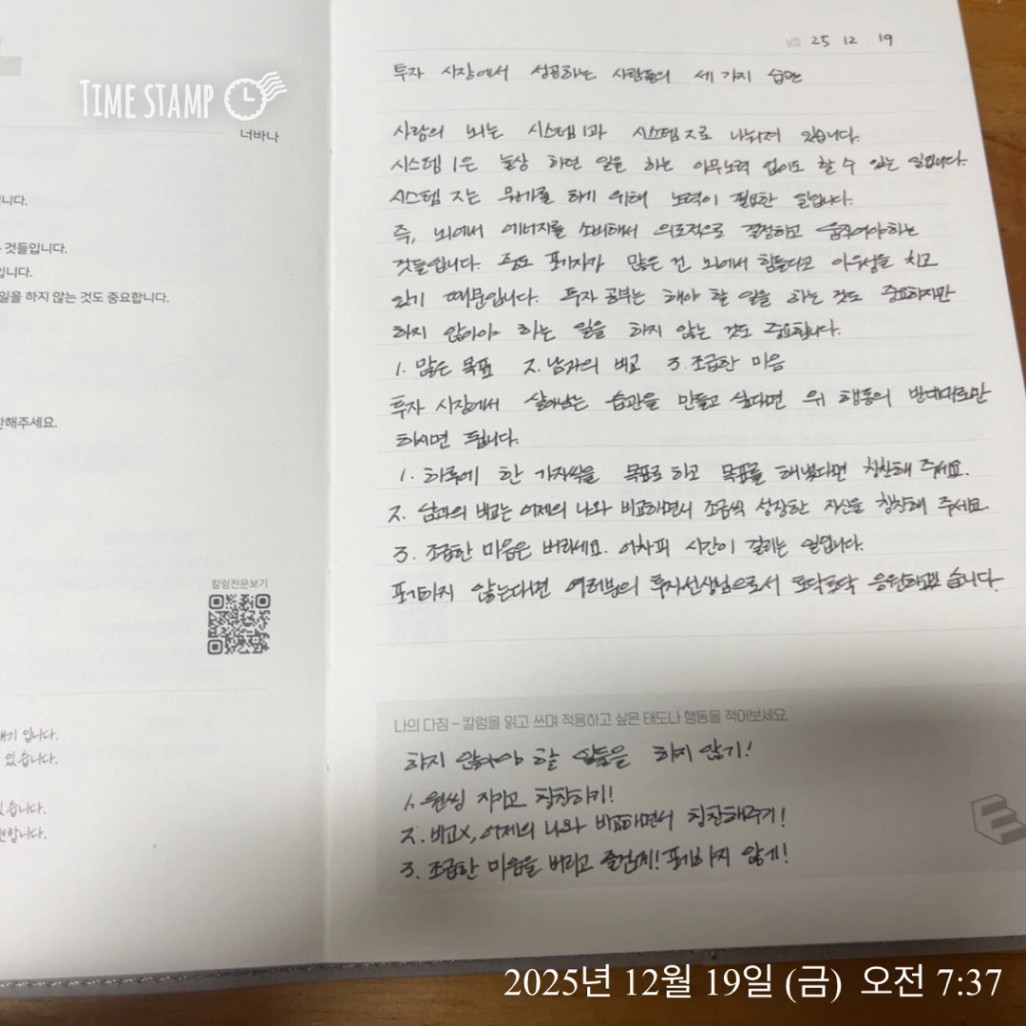 TIME STAMP
너바나
니다.
것들입니다.
입니다.
일을 하지 않는 것도 중요합니다.
해주세요.
칼럼 전문 보기
기 입니다.
있습니다.
있습니다.
합니다.
날짜 25 12 19
투자 시장에서 성공하는 사람들의 세 가지 습관
사람의 뇌는 시스템1과 시스템2로 나눠져 있습니다.
시스템 1은 늘상 하던 일을 하는 아무노력 없이도 할 수 있는 일입니다.
시스템 2는 무언가를 하기 위해 노력이 필요한 일입니다.
즉, 뇌에서 에너지를 소비해서 의도적으로 결정하고 움직여야하는
것들입니다. 중도 포기자가 많은 건 뇌에서 힘들다고 아우성을 치고
있기 때문입니다. 투자 공부는 해야 할 일을 하는 것도 중요하지만
하지 않아야 하는 일을 하지 않는 것도 중요합니다.
1. 많은 목표 2. 남과의 비교 3. 조급한 마음
투자 시장에서 살아남는 습관을 만들고 싶다면 위 행동의 반대로만
하시면 됩니다.
1. 하루에 한 가지씩을 목표로 하고 목표를 해냈다면 칭찬해 주세요.
2. 남과의 비교는 어제의 나와 비교하면서 조금씩 성장한 자신을 칭찬해 주세요.
3. 조급한 마음은 버리세요. 어차피 시간이 걸리는 일입니다.
포기하지 않는다면 여러분의 투자선생님으로서 토닥토닥 응원하겠습니다.
나의 다짐 – 칼럼을 읽고 쓰며 적용하고 싶은 태도나 행동을 적어보세요.
하지 않아야 할 일들을 하지 않기!
1. 원씽 지키고 칭찬하기!
2. 비교X, 어제의 나와 비교하면서 칭찬해주기!
3. 조급한 마음을 버리고 즐겁게! 포기하지 않게!
2025년 12월 19일 (금) 오전 7:37